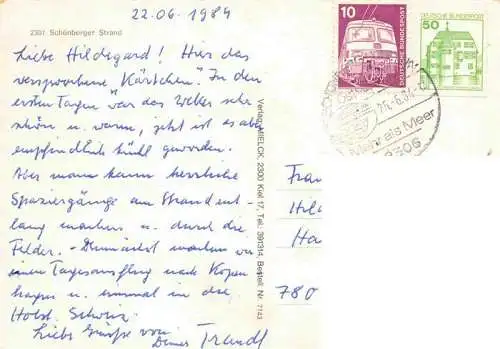 22.06.1984
2301 Schönberger Strand
Liebe Hildegard! Hier das
versprochene Kärtchen. In den
ersten Tagen war das Wetter sehr
schön u. warm, jetzt ist es aber
empfindlich kühl geworden.
Aber man kann herrliche
Spaziergänge am Strand ent-
lang machen u. durch die
Felder. - Demnächst machen wir
einen Tagesausflug nach Kopen
hagen u. einmal in die
Holst. Schweiz.
Liebe Grüße von
Deiner Traudl
Verlag MIELCK, 2300 Kiel 17, Tel.: 391314, Bestell Nr. 7143
10
DEUTSCHE BUNDESPOST
50
DEUTSCHE BUNDESPOST
Mehr als Meer
2306
Frau
Hil
Ha
780